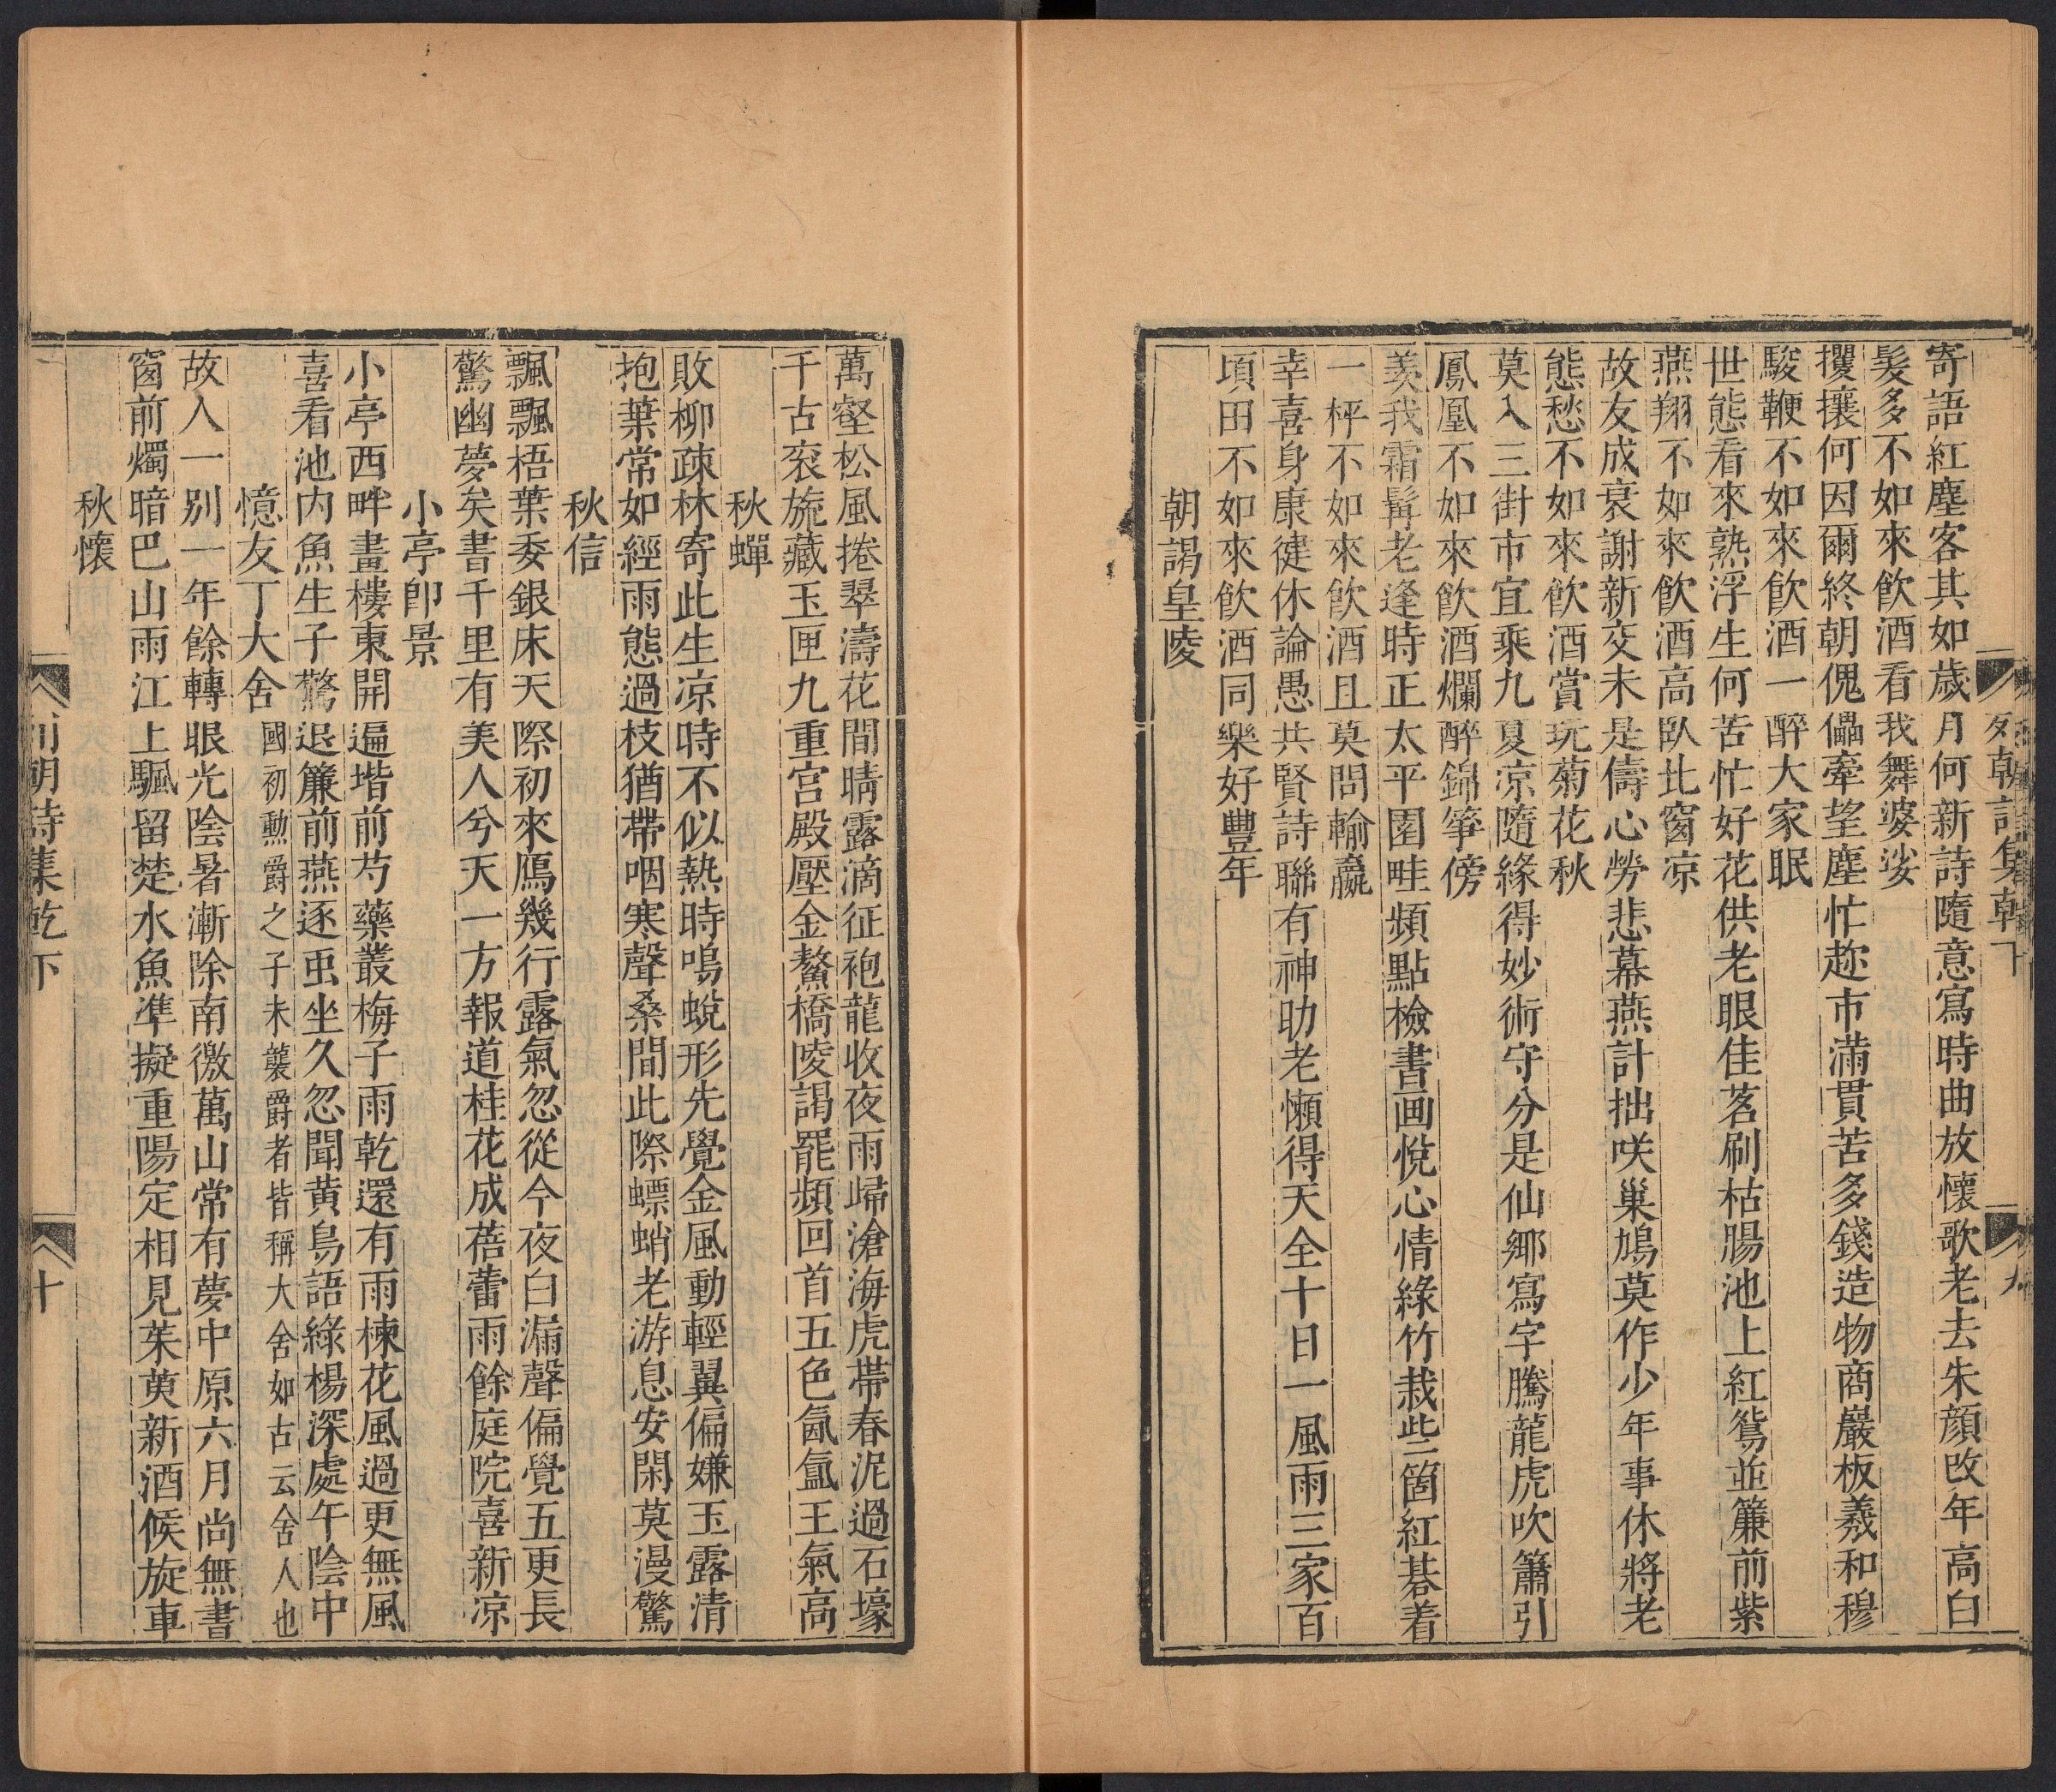 寄語紅塵客其如歲月何新詩隨意寫時曲放懷歌老去朱顔改年高白
髮多不如來飲酒看我舞婆娑
攫攘何因爾終朝傀儡牽望塵忙趂市滿貫苦多錢造物商巖板羲和穆
駿鞭不如來飲酒一醉大家眠
世態看來熟浮生何苦忙好花供老眼佳茗刷枯腸池上紅鴛並簾前紫
燕翔不如來飲酒高臥北窗凉
故友成衰謝新交未是儔心勞悲幕燕計拙咲巢鳩莫作少年事休將老
態愁不如來飲酒賞玩菊花秋
莫入三街市宜乘九夏凉隨緣得妙術守分是仙鄉寫字騰龍虎吹簫引
鳳凰不如來飲酒爛醉錦箏傍
羡我霜髯老逢時正太平園畦頻點檢書画悅心情綠竹栽些箇紅碁着
一枰不如來飲酒且莫問輸贏
幸喜身康健休論愚共賢詩聯有神助老懶得天全十日一風雨三家百
頃田不如來飲酒同樂好豐年
朝謁皇陵
列朝詩集乾下
九
萬壑松風捲翠濤花間晴露滴征袍龍收夜雨歸滄海虎帶春泥過石壕
千古衮旒藏玉匣九重宫殿壓金鰲橋陵謁罷頻回首五色氤氳王氣高
秋蟬
敗柳疎林寄此生凉時不似熱時鳴蛻形先覺金風動輕翼偏嫌玉露清
抱葉常如經雨態過枝猶帶咽寒聲桑間此際螵蛸老游息安閑莫漫驚
秋信
飄飄梧葉委銀床天際初來鴈幾行露氣忽從今夜白漏聲偏覺五更長
驚幽夢矣書千里有美人兮天一方報道桂花成蓓蕾雨餘庭院喜新凉
小亭卽景
小亭西畔畫樓東開遍堦前芍藥叢梅子雨乾還有雨楝花風過更無風
喜看池内魚生子驚退簾前燕逐虫坐久忽聞黄鳥語綠楊深處午陰中
憶友丁大舍 國初勳爵之子未襲爵者皆稱大舍如古云舍人也
故人一別一年餘轉眼光陰暑漸除南徼萬山常有夢中原六月尚無書
窗前燭暗巴山雨江上颿留楚水魚準擬重陽定相見茱萸新酒候旋車
秋懷
列朝詩集乾下
十